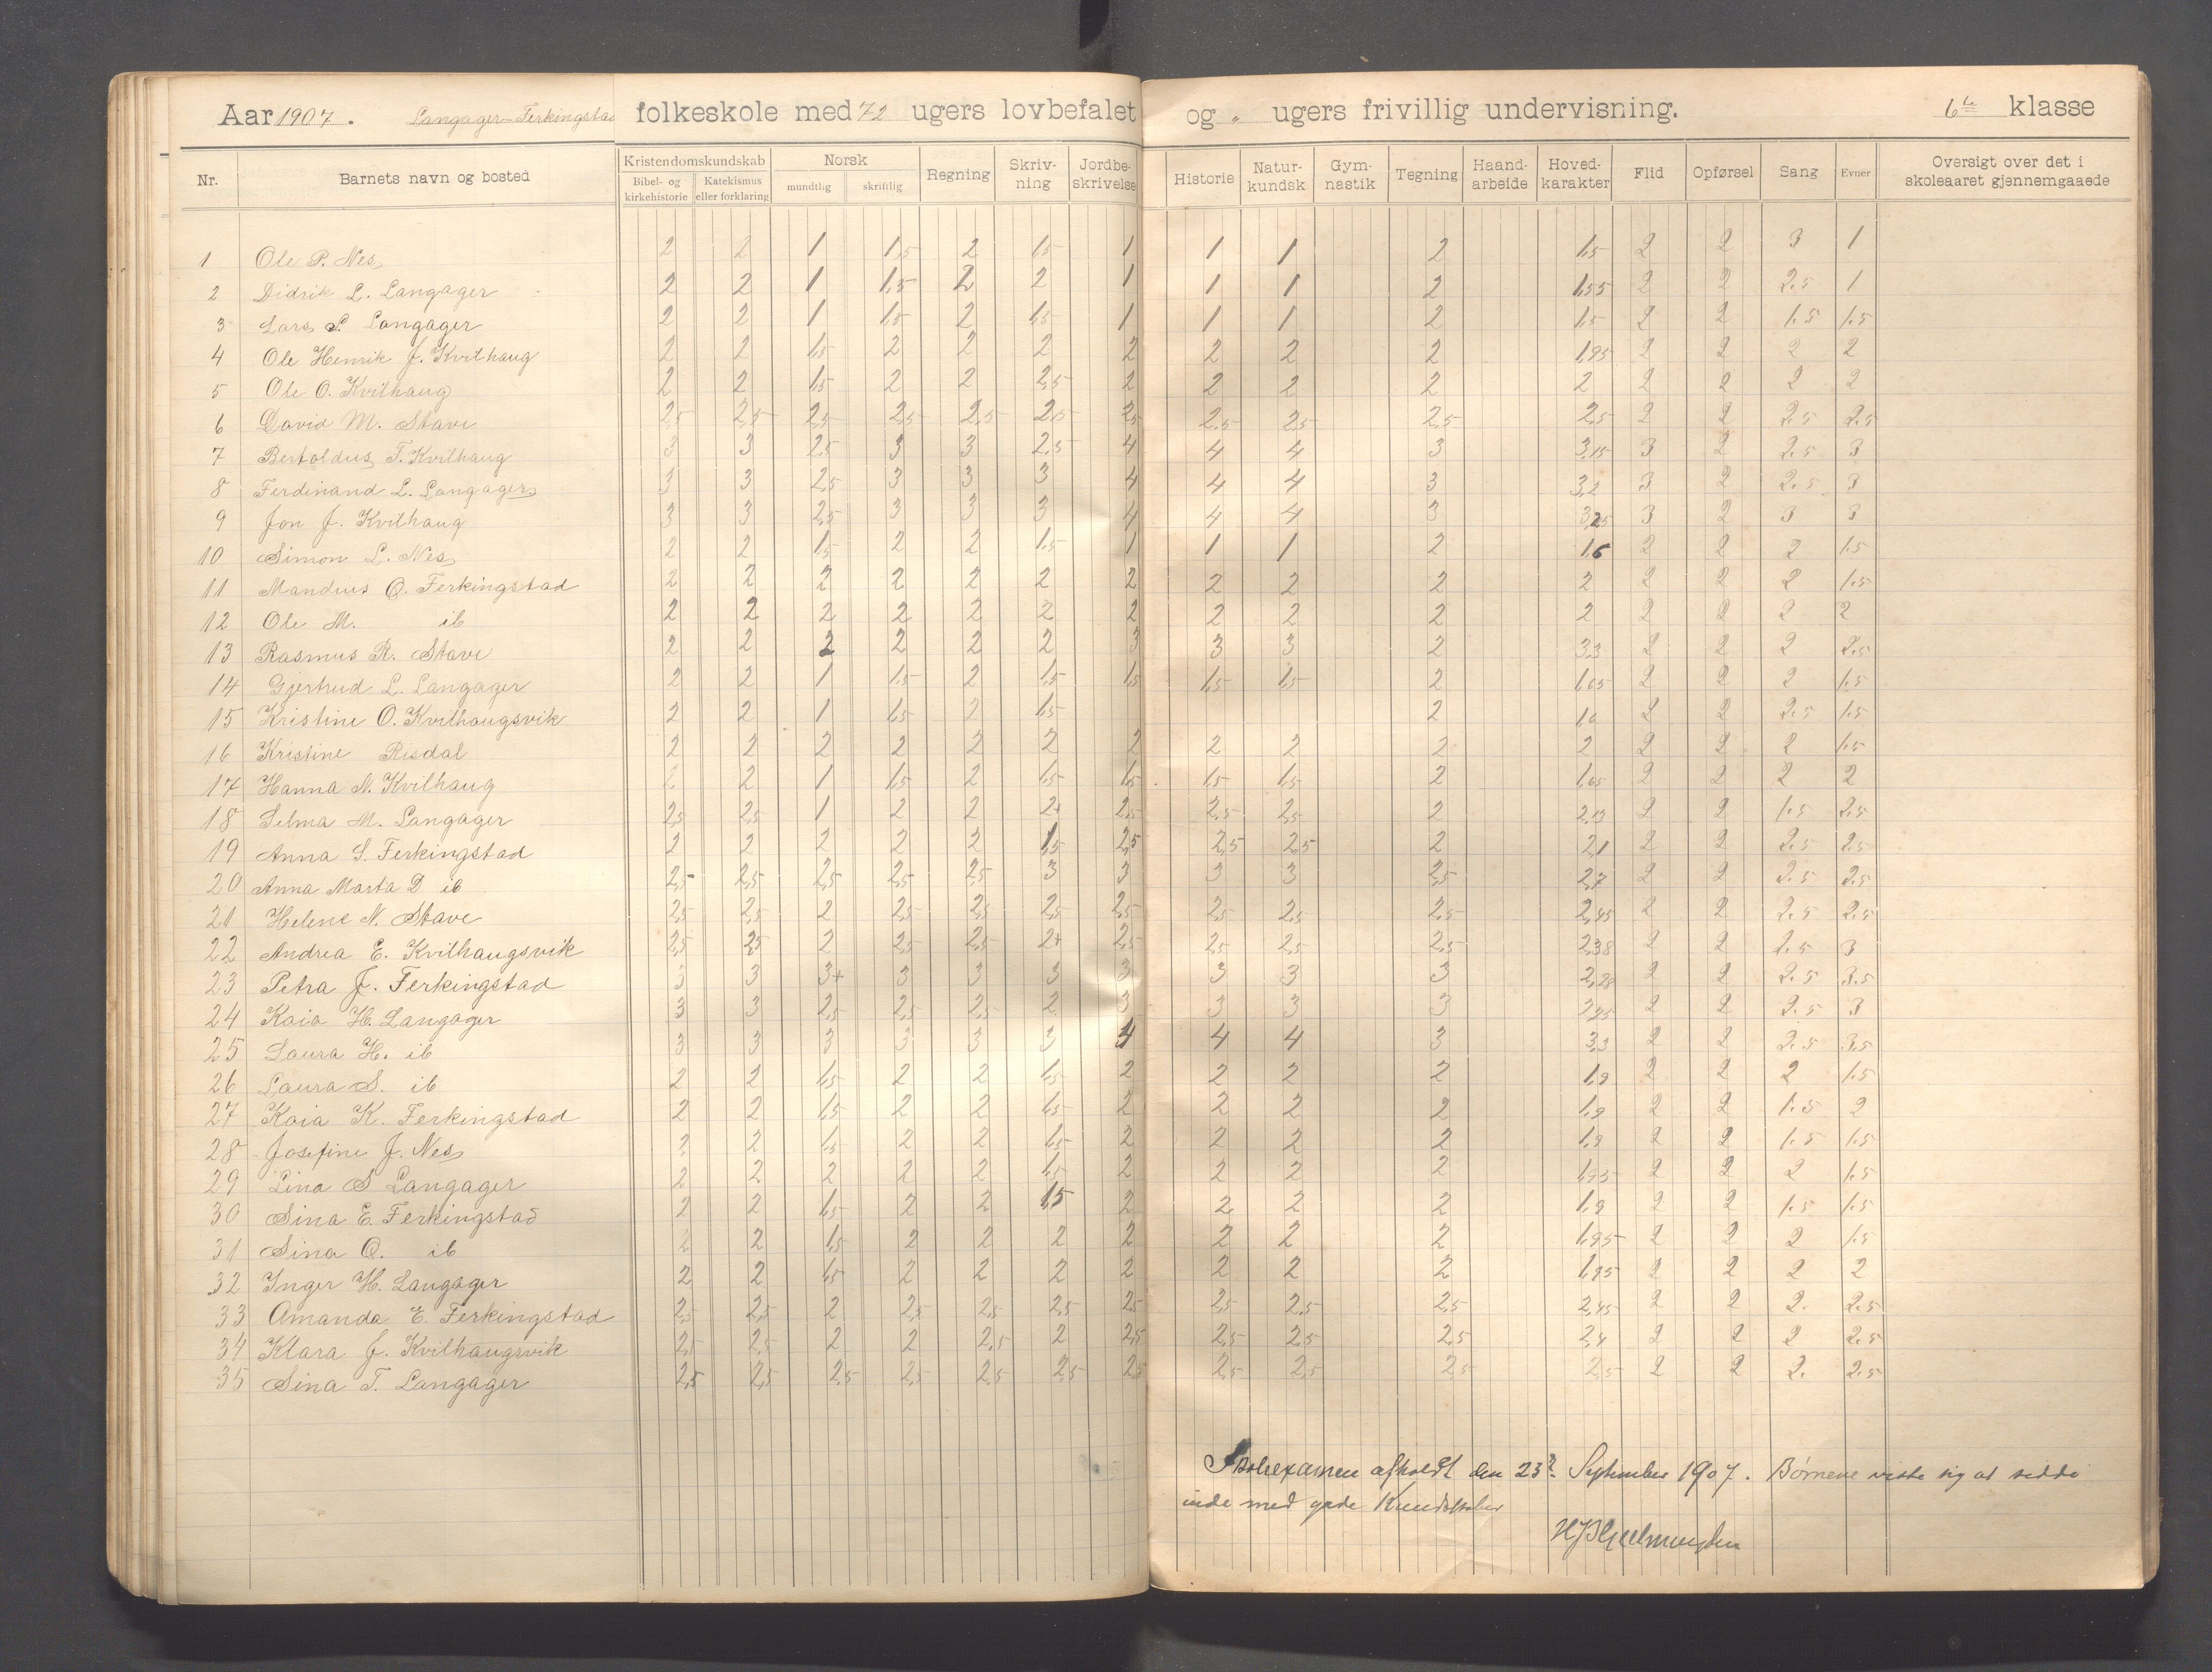 Aar 1907. Langager-Ferkingstad folkeskole med 72 ugers lovbefalet og " ugers frivillig undervisning. 6te klasse
Nr. Barnets navn og bosted Kristendomskundskab Bibel- og kirkehistorie Katekismus eller forklaring Norsk mundtlig skriftlig Regning Skriv-ning Jordbe-skrivelse Historie Natur-kundsk Gym-nastik Tegning Haand-arbeide Hoved-karakter Flid Opførsel Sang Evner Oversigt over det i skoleaaret gjennemgaaede
1 Ole P. Nes 2 2 1 1,5 2 1,5 1 1 1 2 1,5 2 2 3 1
2 Didrik L. Langager 2 2 1 1,5 2 2 1 1 1 2 1,55 2 2 2.5 1
3 Lars S. Langager 2 2 1 1,5 2 1,5 1 1 1 2 1,5 2 2 1.5 1.5
4 Ole Henrik J. Kvilhaug 2 2 1,5 2 2 2 2 2 2 2 1,95 2 2 2 2
5 Ole O. Kvilhaug 2 2 1,5 2 2 2,5 2 2 2 2 2 2 2 2 2
6 David M. Stave 2,5 2,5 2,5 2,5 2,5 2,5 2,5 2,5 2,5 2,5 2,5 2 2 2.5 2.5
7 Bertoldus T. Kvilhaug 3 3 2,5 3 3 2,5 4 4 4 3 3,15 3 2 2.5 3
8 Ferdinand L. Langager 3 3 2,5 3 3 3 4 4 4 3 3,2 3 2 2.5 3
9 Jon J. Kvilhaug 3 3 2,5 3 3 3 4 4 4 3 3,25 3 2 3 3
10 Simon L. Nes 2 2 1,5 2 2 1,5 1 1 1 2 1,6 2 2 2 1.5
11 Mandius O. Ferkingstad 2 2 2 2 2 2 2 2 2 2 2 2 2 2 1.5
12 Ole M. ib 2 2 2 2 2 2 2 2 2 2 2 2 2 2 2
13 Rasmus R. Stave 2 2 2 2 2 2 3 3 3 2 3,3 2 2 2 2.5
14 Gjertrud L. Langager 2 2 1 1,5 2 1,5 1,5 1,5 1,5 2 1,65 2 2 2 1.5
15 Kristine O. Kvilhaugsvik 2 2 1 1,5 2 1,5 2 1,6 2 2 2.5 1.5
16 Kristine Risdal 2 2 2 2 2 2 2 2 2 2 2 2 2 2 1.5
17 Hanna N. Kvilhaug 2 2 1 1,5 2 1,5 1,5 1,5 1,5 2 1,65 2 2 2 2
18 Selma M. Langager 2,5 2,5 1 2 2 2+ 2,5 2,5 2,5 2 2,13 2 2 1.5 2.5
19 Anna S. Ferkingstad 2 2 2 2 2 1,5 2,5 2,5 2,5 2 2,1 2 2 2.5 2.5
20 Anna Marta D ib 2,5 2,5 2,5 2,5 2,5 3 3 3 3 2,5 2,7 2 2 2.5 2.5
21 Helene N. Stave 2,5 2,5 2 2,5 2,5 2,5 2,5 2,5 2,5 2,5 2,45 2 2 2.5 2.5
22 Andrea E. Kvilhaugsvik 2,5 2,5 2 2,5 2,5 2+ 2,5 2,5 2,5 2,5 2,38 2 2 2.5 3
23 Petra J. Ferkingstad 3 3 3+ 3 3 3 3 3 3 3 2,98 2 2 2.5 3.5
24 Kaia H. Langager 3 3 2,5 2,5 2,5 2 3 3 3 3 2,75 2 2 2.5 3
25 Laura H. ib 3 3 3 3 3 3 4 4 4 3 3,3 2 2 2.5 3.5
26 Laura S. ib 2 2 1,5 2 2 1,5 2 2 2 2 1,9 2 2 2 1.5
27 Kaia K. Ferkingstad 2 2 1,5 2 2 1,5 2 2 2 2 1,9 2 2 1.5 2
28 Josefine J. Nes 2 2 1,5 2 2 1,5 2 2 2 2 1,9 2 2 1.5 1.5
29 Lina S Langager 2 2 2 2 2 1,5 2 2 2 2 1,95 2 2 2 1.5
30 Sina E. Ferkingstad 2 2 1,5 2 2 1,5 2 2 2 2 1,9 2 2 1.5 1.5
31 Sina O. ib 2 2 1,5 2 2 2 2 2 2 2 1,95 2 2 2 1.5
32 Inger H. Langager 2 2 1,5 2 2 2 2 2 2 2 1,95 2 2 2 2
33 Amanda E. Ferkingstad 2,5 2,5 2 2,5 2,5 2,5 2,5 2,5 2,5 2,5 2,45 2 2 2. 2.5
34 Klara J. Kvilhaugsvik 2,5 2,5 2 2 2,5 2 2,5 2,5 2,5 2,5 2,4 2 2 2 2.5
35 Sina T. Langager 2,5 2,5 2,5 2,5 2,5 2,5 2,5 2,5 2,5 2,5 2,5 2 2 2. 2.5
Skoleexamen afholdt den 23d. September 1907. Børnene viste sig at sidde
inde med gode Kundskaber